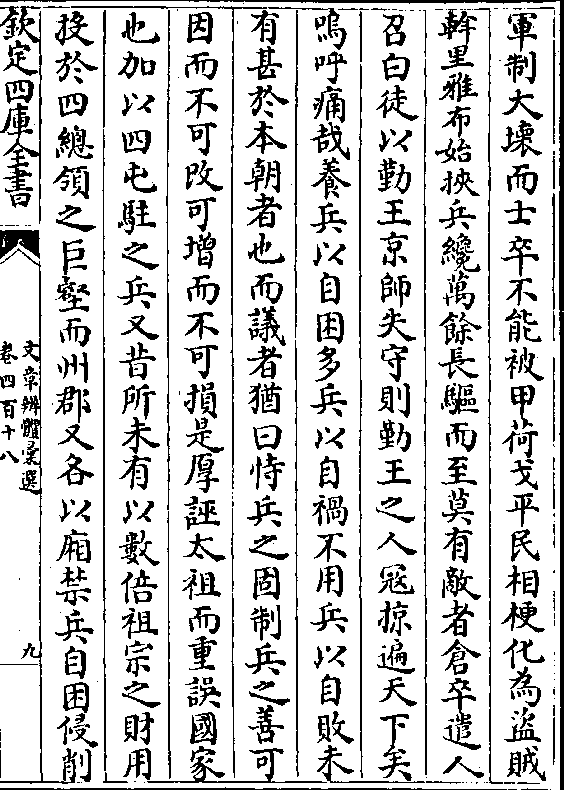 軍制大壞而士卒不能被甲荷戈平民相梗化為盜賊
斡里雅布始挾兵纔萬餘長驅而至莫有敵者倉卒遣人
召白徒以勤王京師失守則勤王之人冦掠遍天下矣
嗚呼痛哉養兵以自困多兵以自禍不用兵以自敗未
有甚於本朝者也而議者猶曰恃兵之固制兵之善可
因而不可改可增而不可損是厚誣太祖而重誤國家
也加以四屯駐之兵又昔所未有以數倍祖宗之財用
投於四總領之巨壑而州郡又各以廂禁兵自困侵削
欽定四庫全書
文章辨體彚選
卷四百十八
九